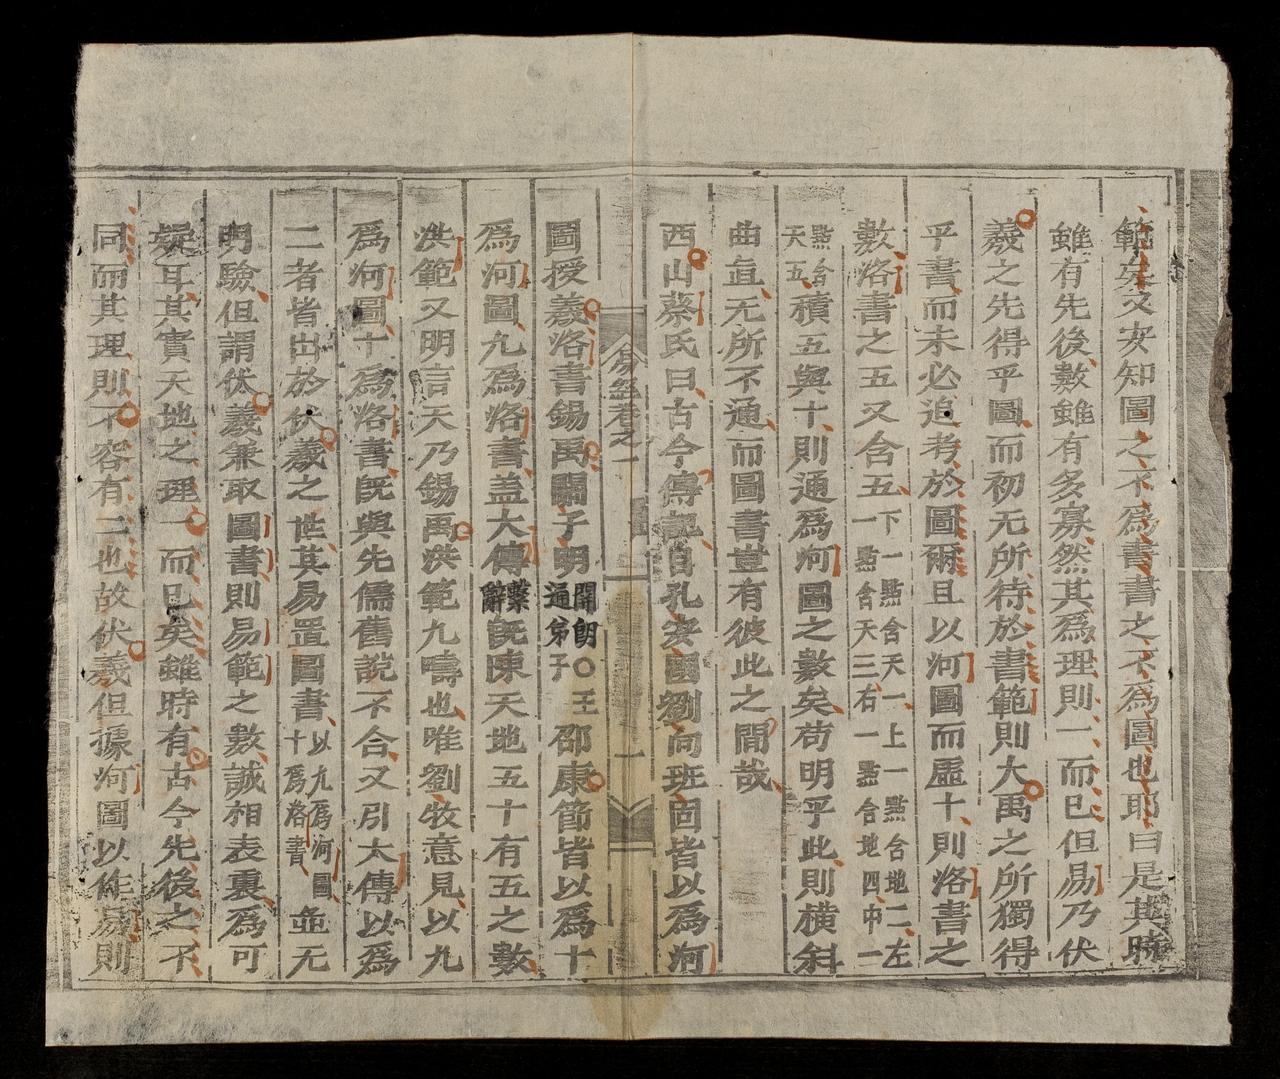 範矣又安知圖之不爲書書之不爲圖也耶曰是其時
雖有先後數雖有多寡然其爲理則一而已但易乃伏
羲之先得乎圖而初无所待於書範則大禹之所獨得
乎書而未必追考於圖爾且以河圖而虛十則洛書之
數洛書之五又含五下一點含天一上一點含地二左一點含天三右一點含地四中一
點含天五積五與十則通爲河圖之數矣苟明乎此則橫斜
曲直无所不通而圖書豈有彼此之間哉
西山蔡氏曰古今傳記自孔安國劉向班固皆以爲河
易經卷之一
一
圖授羲洛書錫禹關子明開朗通第子〇王邵康節皆以爲十
爲河圖九爲洛書蓋大傳繫辭旣陳天地五十有五之數
洪範又明言天乃錫禹洪範九疇也唯劉牧意見以九
爲河圖十爲洛書旣與先儒舊說不合又引大傳以爲
二者皆出於伏羲之世其易置圖書以九爲河圖十爲洛書並无
明驗但謂伏羲兼取圖書則易範之數誠相表裏爲可
疑耳其實天地之理一而已矣雖時有古今先後之不
同而其理則不容有二也故伏羲但據河圖以作易則